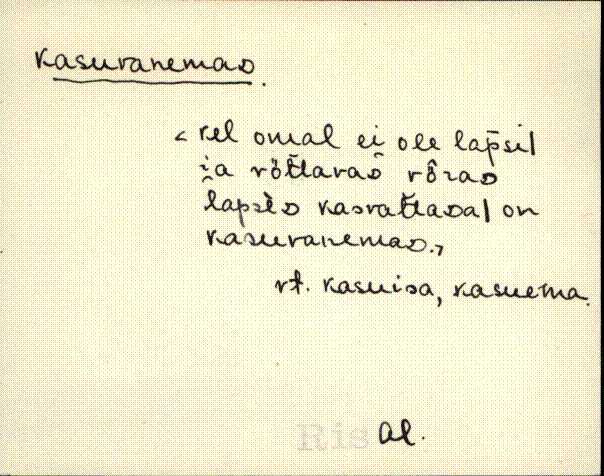 kasuvanemaD
‹ kel omal ei ole lapsi
ja võttavaD võraD
lapseD kasvattaDa on
kasuvanemaD.›
vt. kasuisa, kasuema.
Ris
Al.